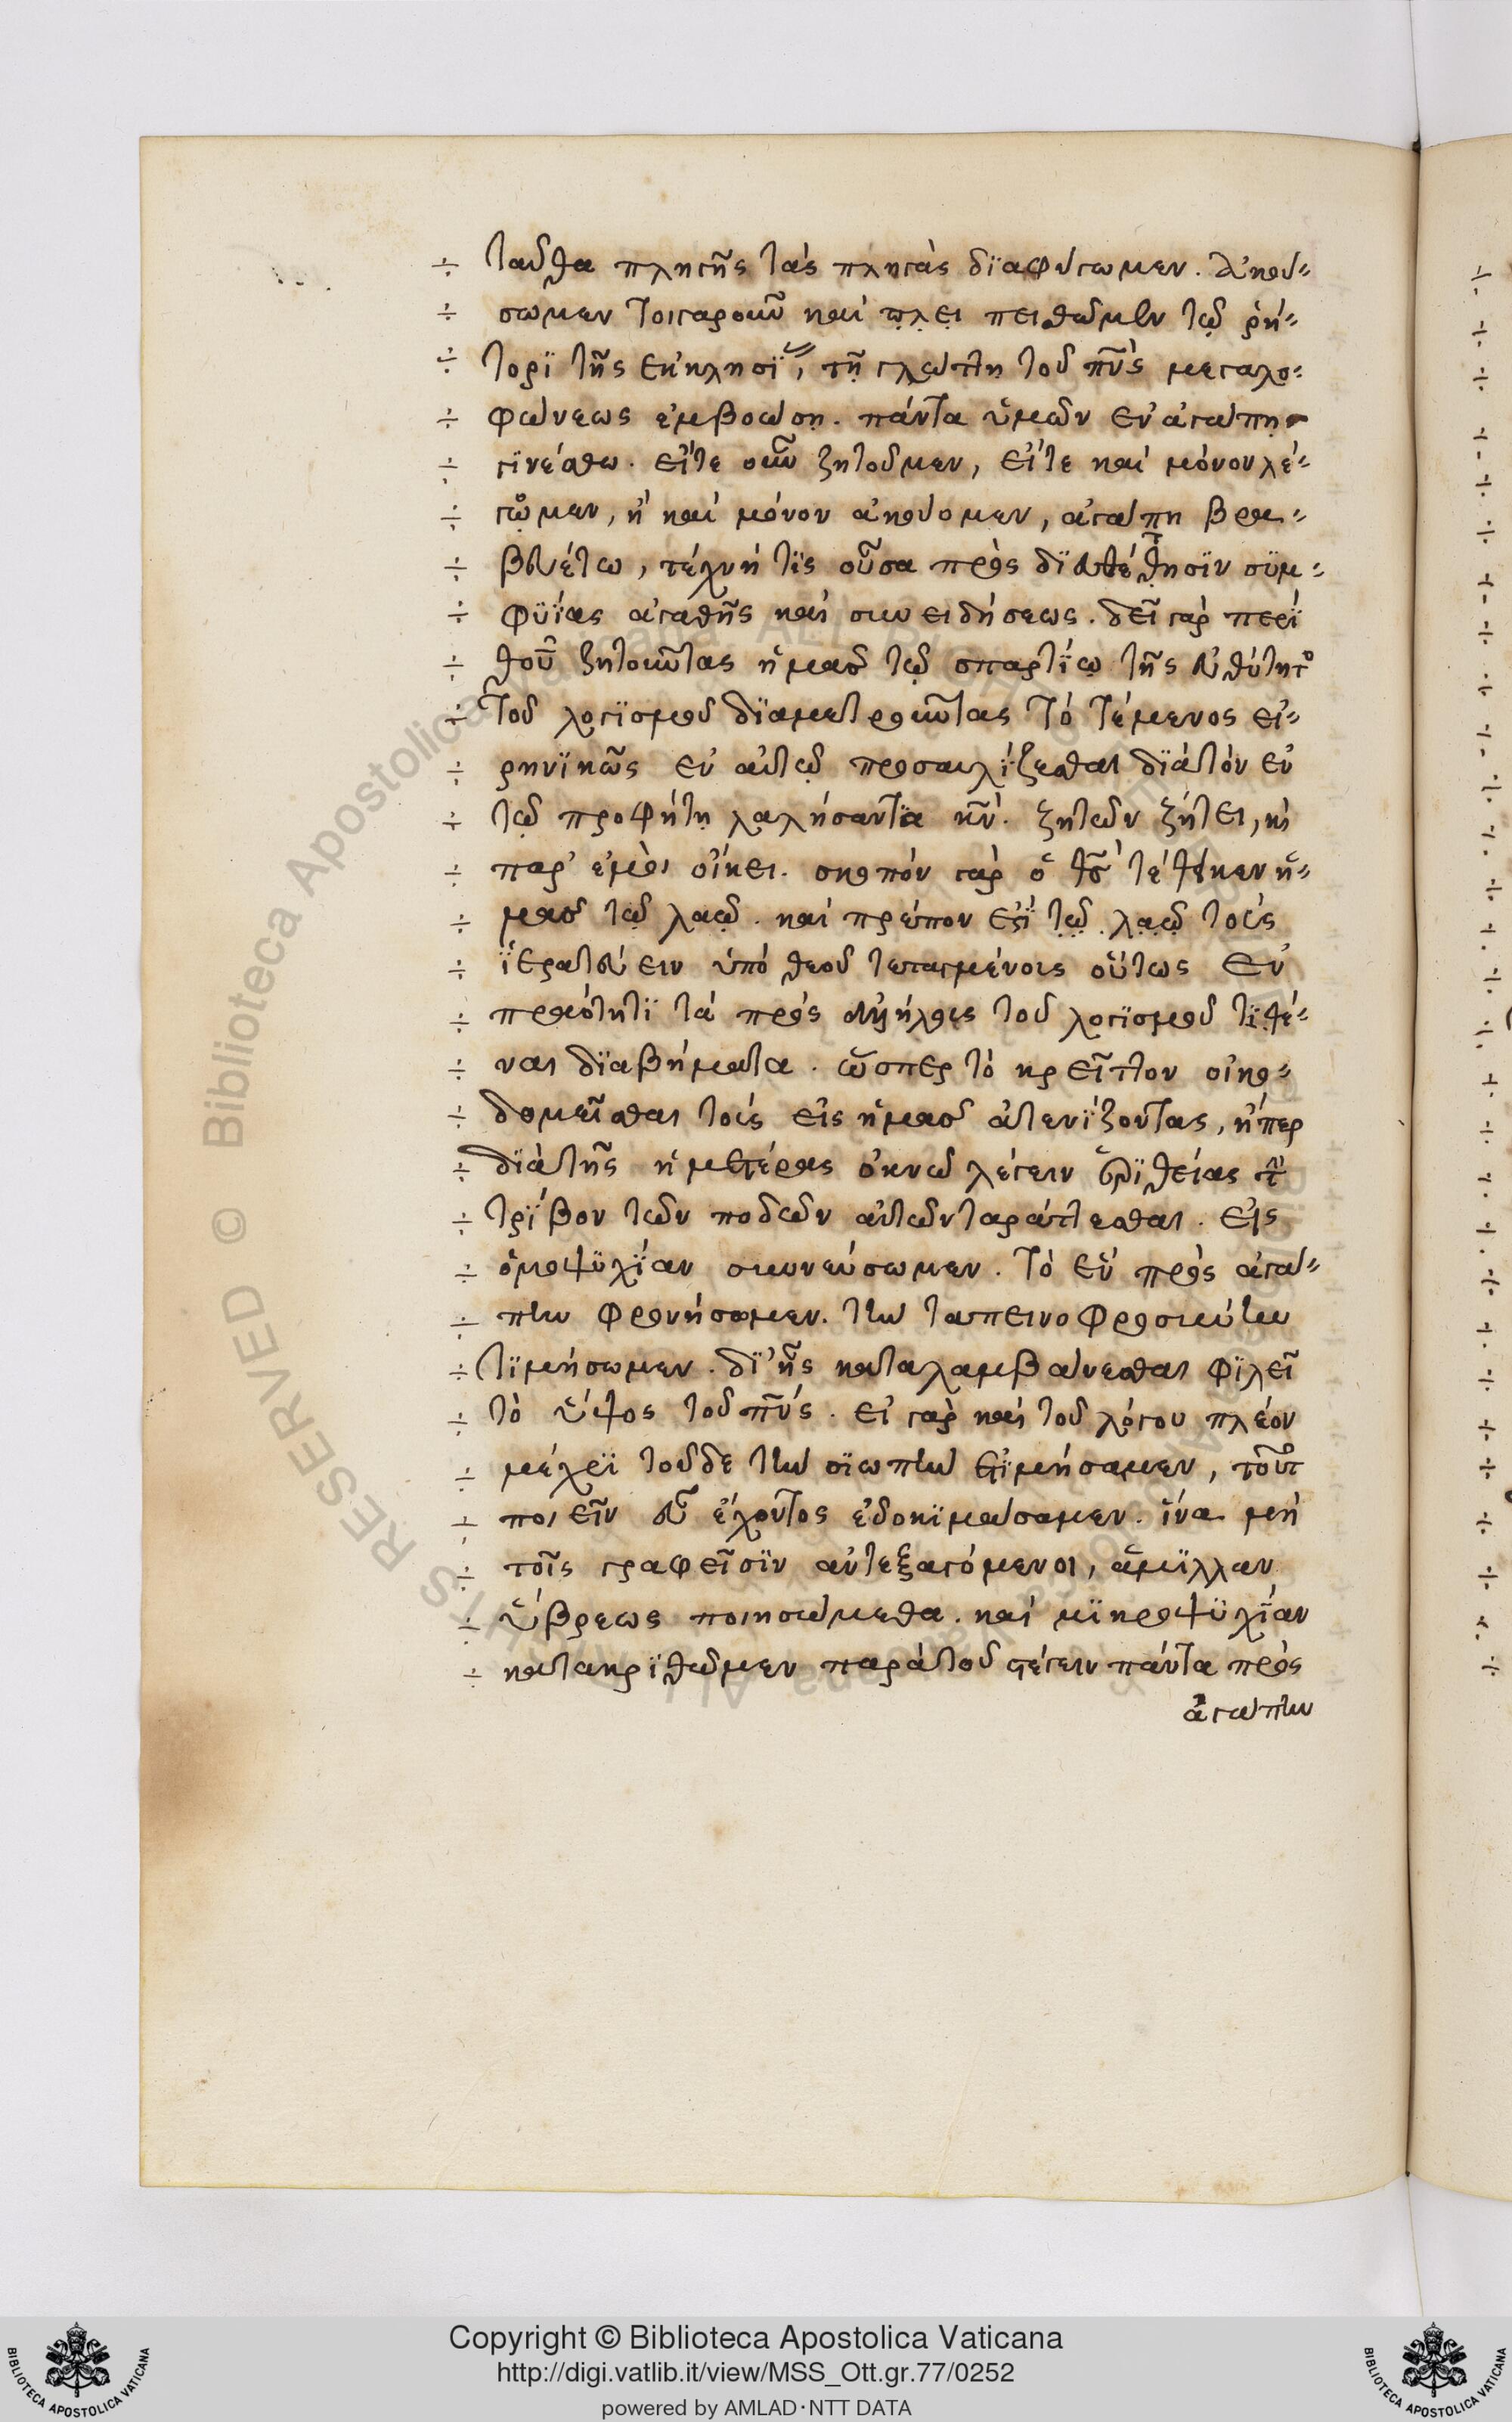 ταῦθα πληγῆς τὰς πληγὰς διαφύγωμεν. Ἀκού-
σωμεν τοιγαροῦν καὶ πάλει πειθῶμεν τῷ ῥή-
τορϊ τῆς ἐκκλησϊ, τῇ γλώττῃ τοῦ πν̅ς μεγαλο-
φώνεως ἐμβοώσῃ. πάντα ὑμῶν ἐν ἀγάπῃ
γϊνέσθω. εἴτε οὖν ζητοῦμεν, εἴτε καὶ μόνον λέ-
γωμεν, ἢ καὶ μόνον ἀκούομεν, ἀγάπη βρα-
βευέτω, τέχνη τϊς οὖσα πρὸς δϊ σϋμ-
φϋΐας ἀγαθῆς καὶ συνειδήσεως. δεῖ γὰρ περϊ
θοῦ ζητοῦντας ἡμᾶς τῷ σπαρτΐῳ τῆς εὐθύτητ
τοῦ λογϊσμοῦ δϊαμετροῦντας τὸ τέμενος εἰ-
ρηνϊκῶς ἐν αὐτῷ προσαυλΐζεσθαι δϊὰ τὸν ἐν
τῷ προφήτῃ λαλήσαντα κν̅. ζητῶν ζήτει, κὶ
παρ' ἐμοὶ οἴκει. σκοπὸν γὰρ ὁ θς̅ τέθεικεν ἡ-
μᾶς τῷ λαῷ. καὶ πρέπον ἐστϊ τῷ λαῷ τοὺς
ϊερατεύειν ὑπὸ θεοῦ τεταγμένοις οὕτως ἐν
πραότητϊ τὰ πρὸς τοῦ λογϊσμοῦ τϊθέ-
ναι δϊαβήματα. ὥσπερ τὸ κρεῖττον οἰκο-
δομεῖσθαι τοὺς εἰς ἡμᾶς ἀτενΐζοντας, ἤπερ
δϊὰ τῆς ἡμετέρας ὀκνῶ λέγειν ἐρϊθείας τ
τρΐβον τῶν ποδῶν αὐτῶν ταράττεσθαι. εἰς
ὁμοψϋχΐαν συννεύσωμεν. τὸ ἓν πρὸς ἀγά-
πην φρονήσωμεν. τὴν ταπεινοφροσύνην
τϊμήσωμεν. δϊ' ἧς καταλαμβάνεσθαι φϊλεῖ
τὸ ὕψος τοῦ πν̅ς. εἰ γὰρ καὶ τοῦ λόγου πλέον
μέχρϊ τοῦδε τὴν σϊωπὴν ἐτϊμήσαμεν, τοῦτ
ποιεῖν εὖ ἔχοντος ἐδοκϊμάσαμεν. ἵνα μὴ
τοῖς γραφεῖσϊν ἀντεξαγόμενοι, ἅμϊλλαν
ὕβρεως ποιησώμεθα. καὶ μϊκροψϋχΐαν
κατακρϊθῶμεν παρὰ τοῦ στέγειν πάντα πρὸς
ἀγάπην
Copyright © Biblioteca Apostolica Vaticana
http://digi.vatlib.it/view/MSS_Ott.gr.77/0252
powered by AMLAD·NTT DATA